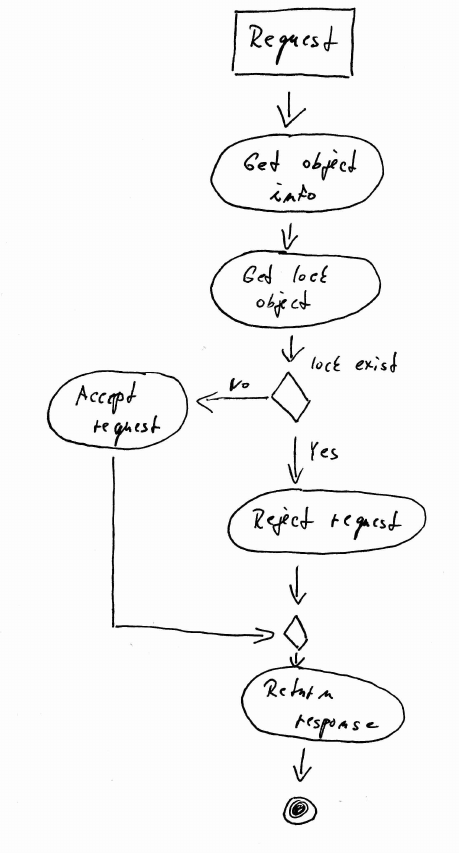 Request
Get object
info
Get lock
object
lock exist
No
Accept
request
Yes
Reject request
Return
response